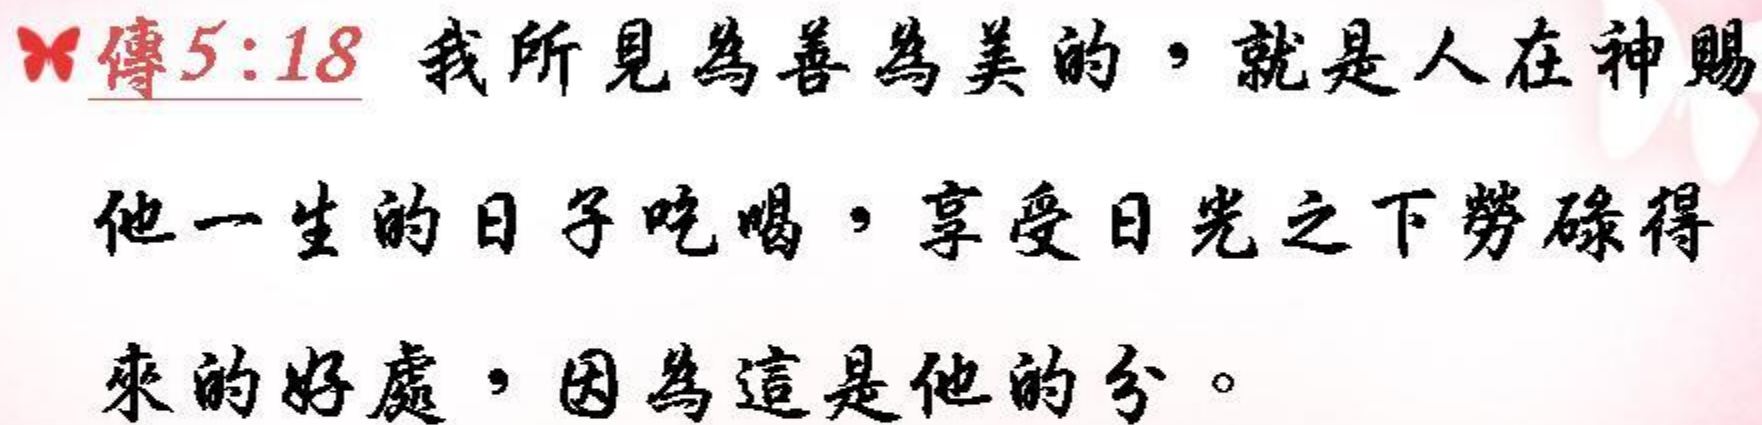 傳5:18 我所見為善為美的，就是人在神賜
他一生的日子吃喝，享受日光之下勞碌得
來的好處，因為這是他的分。